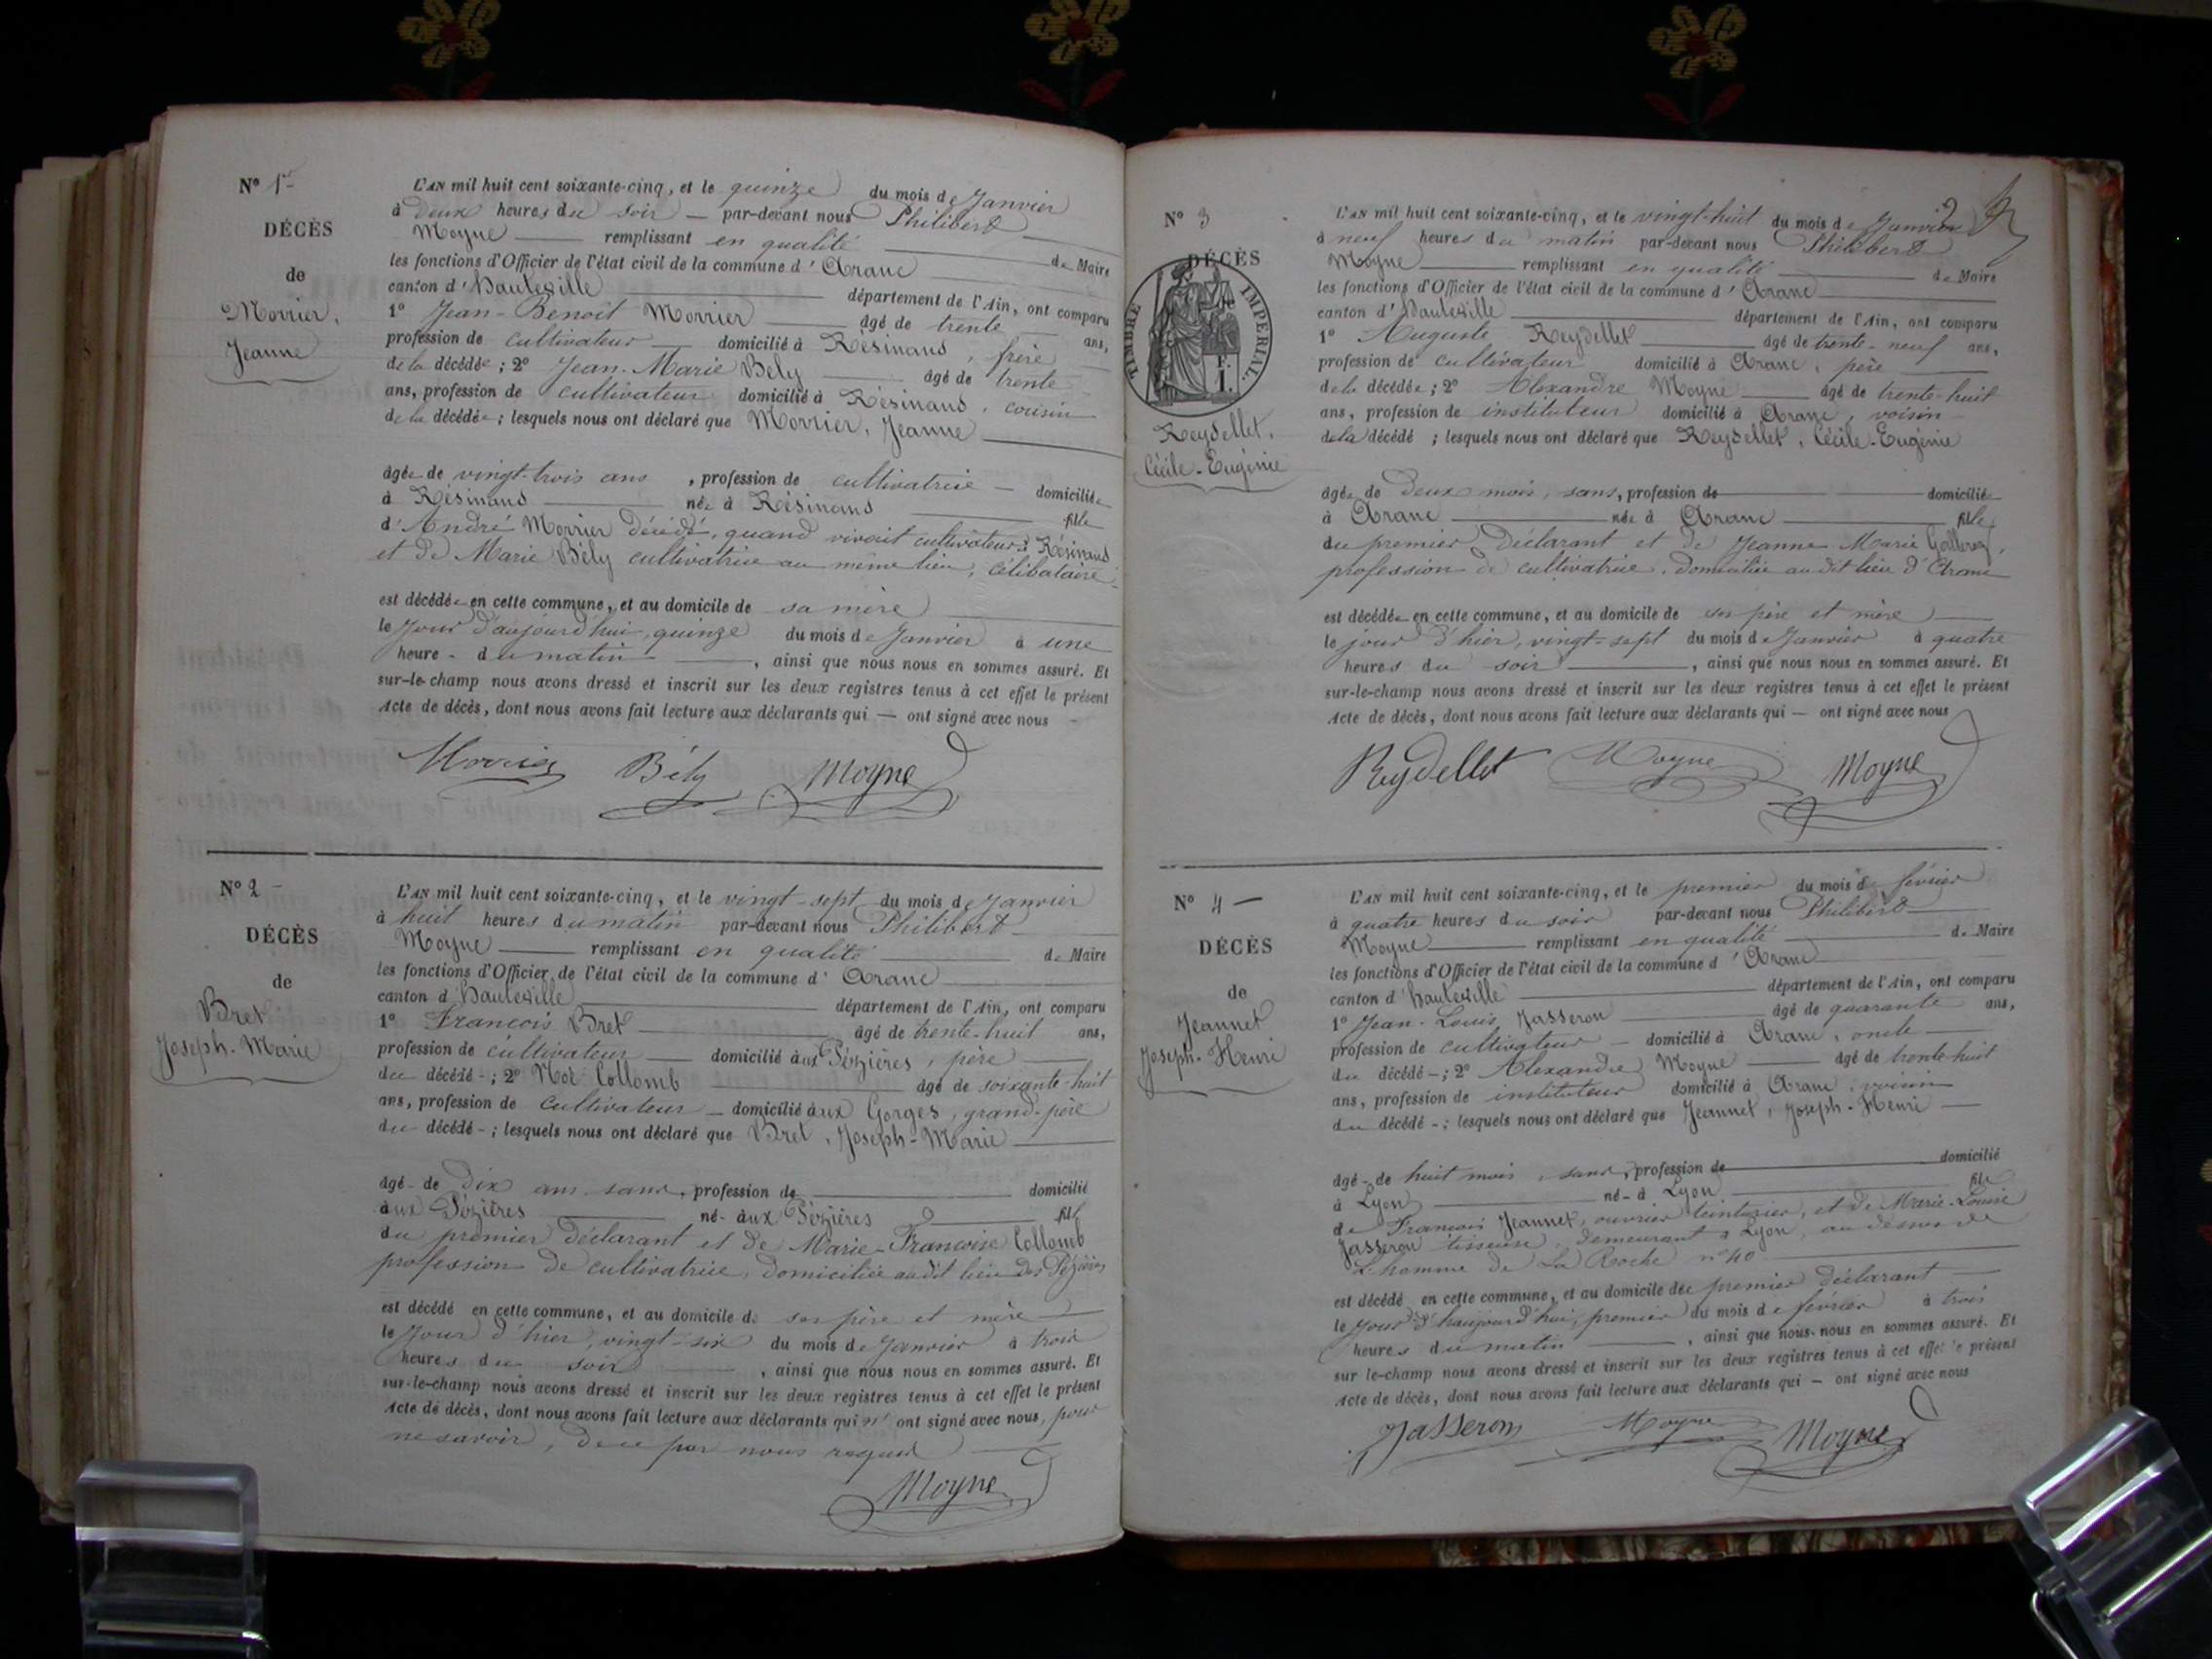 N° 1er
DÉCÈS
de
Morrier,
Jeanne
L'AN mil huit cent soixante-cinq, et le quinze du mois de Janvier
à deux heures du soir — par-devant nous Philibert
Moyne remplissant en qualité de Maire
les fonctions d'Officier de l'état civil de la commune d'Aranc
canton d'Hauteville département de l'Ain, ont comparu
1° Jean-Benoit Morrier âgé de trente ans,
profession de cultivateur domicilié à Résinand, frère
de la décédée ; 2° Jean-Marie Bély âgé de trente
ans, profession de cultivateur domicilié à Résinand, cousin
de la décédée ; lesquels nous ont déclaré que Morrier, Jeanne
âgée de vingt-trois ans, profession de cultivatrice — domiciliée
à Résinand née à Résinand fille
d'André Morrier décédé, quand vivait cultivateur à Résinand
et de Marie Bély cultivatrice au même lieu, célibataire
est décédée en cette commune, et au domicile de sa mère
le jour d'aujourd'hui, quinze du mois de Janvier à une
heure - du matin, ainsi que nous nous en sommes assuré. Et
sur-le-champ nous avons dressé et inscrit sur les deux registres tenus à cet effet le présent
Acte de décès, dont nous avons fait lecture aux déclarants qui — ont signé avec nous
Morrier Bély Moyne
N° 2 -
DÉCÈS
de
Bret
Joseph-Marie
L'AN mil huit cent soixante-cinq, et le vingt-sept du mois de Janvier
à huit heures du matin par-devant nous Philibert
Moyne remplissant en qualité de Maire
les fonctions d'Officier de l'état civil de la commune d'Aranc
canton d'Hauteville département de l'Ain, ont comparu
1° François Bret âgé de trente-huit ans,
profession de cultivateur — domicilié aux Pézières, père
du décédé - ; 2° Collomb âgé de soixante-huit
ans, profession de cultivateur — domicilié aux Gorges, grand-père
du décédé - ; lesquels nous ont déclaré que Bret, Joseph-Marie
âgé - de dix ans sans, profession de domicilié
aux Pézières né - aux Pézières fils
du premier déclarant et de Marie-Françoise Collomb
profession de cultivatrice, domiciliée audit lieu des Pézières
est décédé en cette commune, et au domicile de ses père et mère
le jour d'hier, vingt-six du mois de Janvier à trois
heures du soir, ainsi que nous nous en sommes assuré. Et
sur-le-champ nous avons dressé et inscrit sur les deux registres tenus à cet effet le présent
Acte de décès, dont nous avons fait lecture aux déclarants qui n'ont signé avec nous, pour
ne savoir, de ce par nous requis
Moyne
2
N° 3
DÉCÈS
TIMBRE IMPÉRIAL
1 F.
Reydellet,
Cécile-Eugénie
L'AN mil huit cent soixante-cinq, et le vingt-huit du mois de Janvier
à neuf heures du matin par-devant nous Philibert
Moyne remplissant en qualité de Maire
les fonctions d'Officier de l'état civil de la commune d'Aranc
canton d'Hauteville département de l'Ain, ont comparu
1° Auguste Reydellet âgé de trente-neuf ans,
profession de cultivateur domicilié à Aranc, père
de la décédée ; 2° Alexandre Moyne âgé de trente-huit
ans, profession de instituteur domicilié à Aranc, voisin
de la décédé ; lesquels nous ont déclaré que Reydellet, Cécile-Eugénie
âgée de deux mois, sans, profession de domiciliée
à Aranc née à Aranc fille
du premier déclarant et de Jeanne Marie
profession de cultivatrice, domiciliée audit lieu d'Aranc
est décédée en cette commune, et au domicile de ses père et mère
le jour d'hier, vingt-sept du mois de Janvier à quatre
heures du soir, ainsi que nous nous en sommes assuré. Et
sur-le-champ nous avons dressé et inscrit sur les deux registres tenus à cet effet le présent
Acte de décès, dont nous avons fait lecture aux déclarants qui — ont signé avec nous
Reydellet Moyne Moyne
N° 4 —
DÉCÈS
de
Jeannet
Joseph-Henri
L'AN mil huit cent soixante-cinq, et le premier du mois de février
à quatre heures du soir par-devant nous Philibert
Moyne remplissant en qualité de Maire
les fonctions d'Officier de l'état civil de la commune d'Aranc
canton d'Hauteville département de l'Ain, ont comparu
1° Jean-Louis Jasseron âgé de quarante ans,
profession de cultivateur — domicilié à Aranc, oncle
du décédé - ; 2° Alexandre Moyne âgé de trente-huit
ans, profession de instituteur domicilié à Aranc, voisin
du décédé - ; lesquels nous ont déclaré que Jeannet, Joseph-Henri
âgé - de huit mois, sans, profession de domicilié
à Lyon né - à Lyon fils
de François Jeannet, ouvrier teinturier, et de Marie-Louise
Jasseron tisseuse, demeurant à Lyon,
L'homme de La Roche n° 40
est décédé en cette commune, et au domicile du premier déclarant
le jour d'haujourd'hui, premier du mois de février à trois
heures du matin, ainsi que nous-nous en sommes assuré. Et
sur le-champ nous avons dressé et inscrit sur les deux registres tenus à cet effet le présent
Acte de décès, dont nous avons fait lecture aux déclarants qui — ont signé avec nous
Jasseron Moyne Moyne